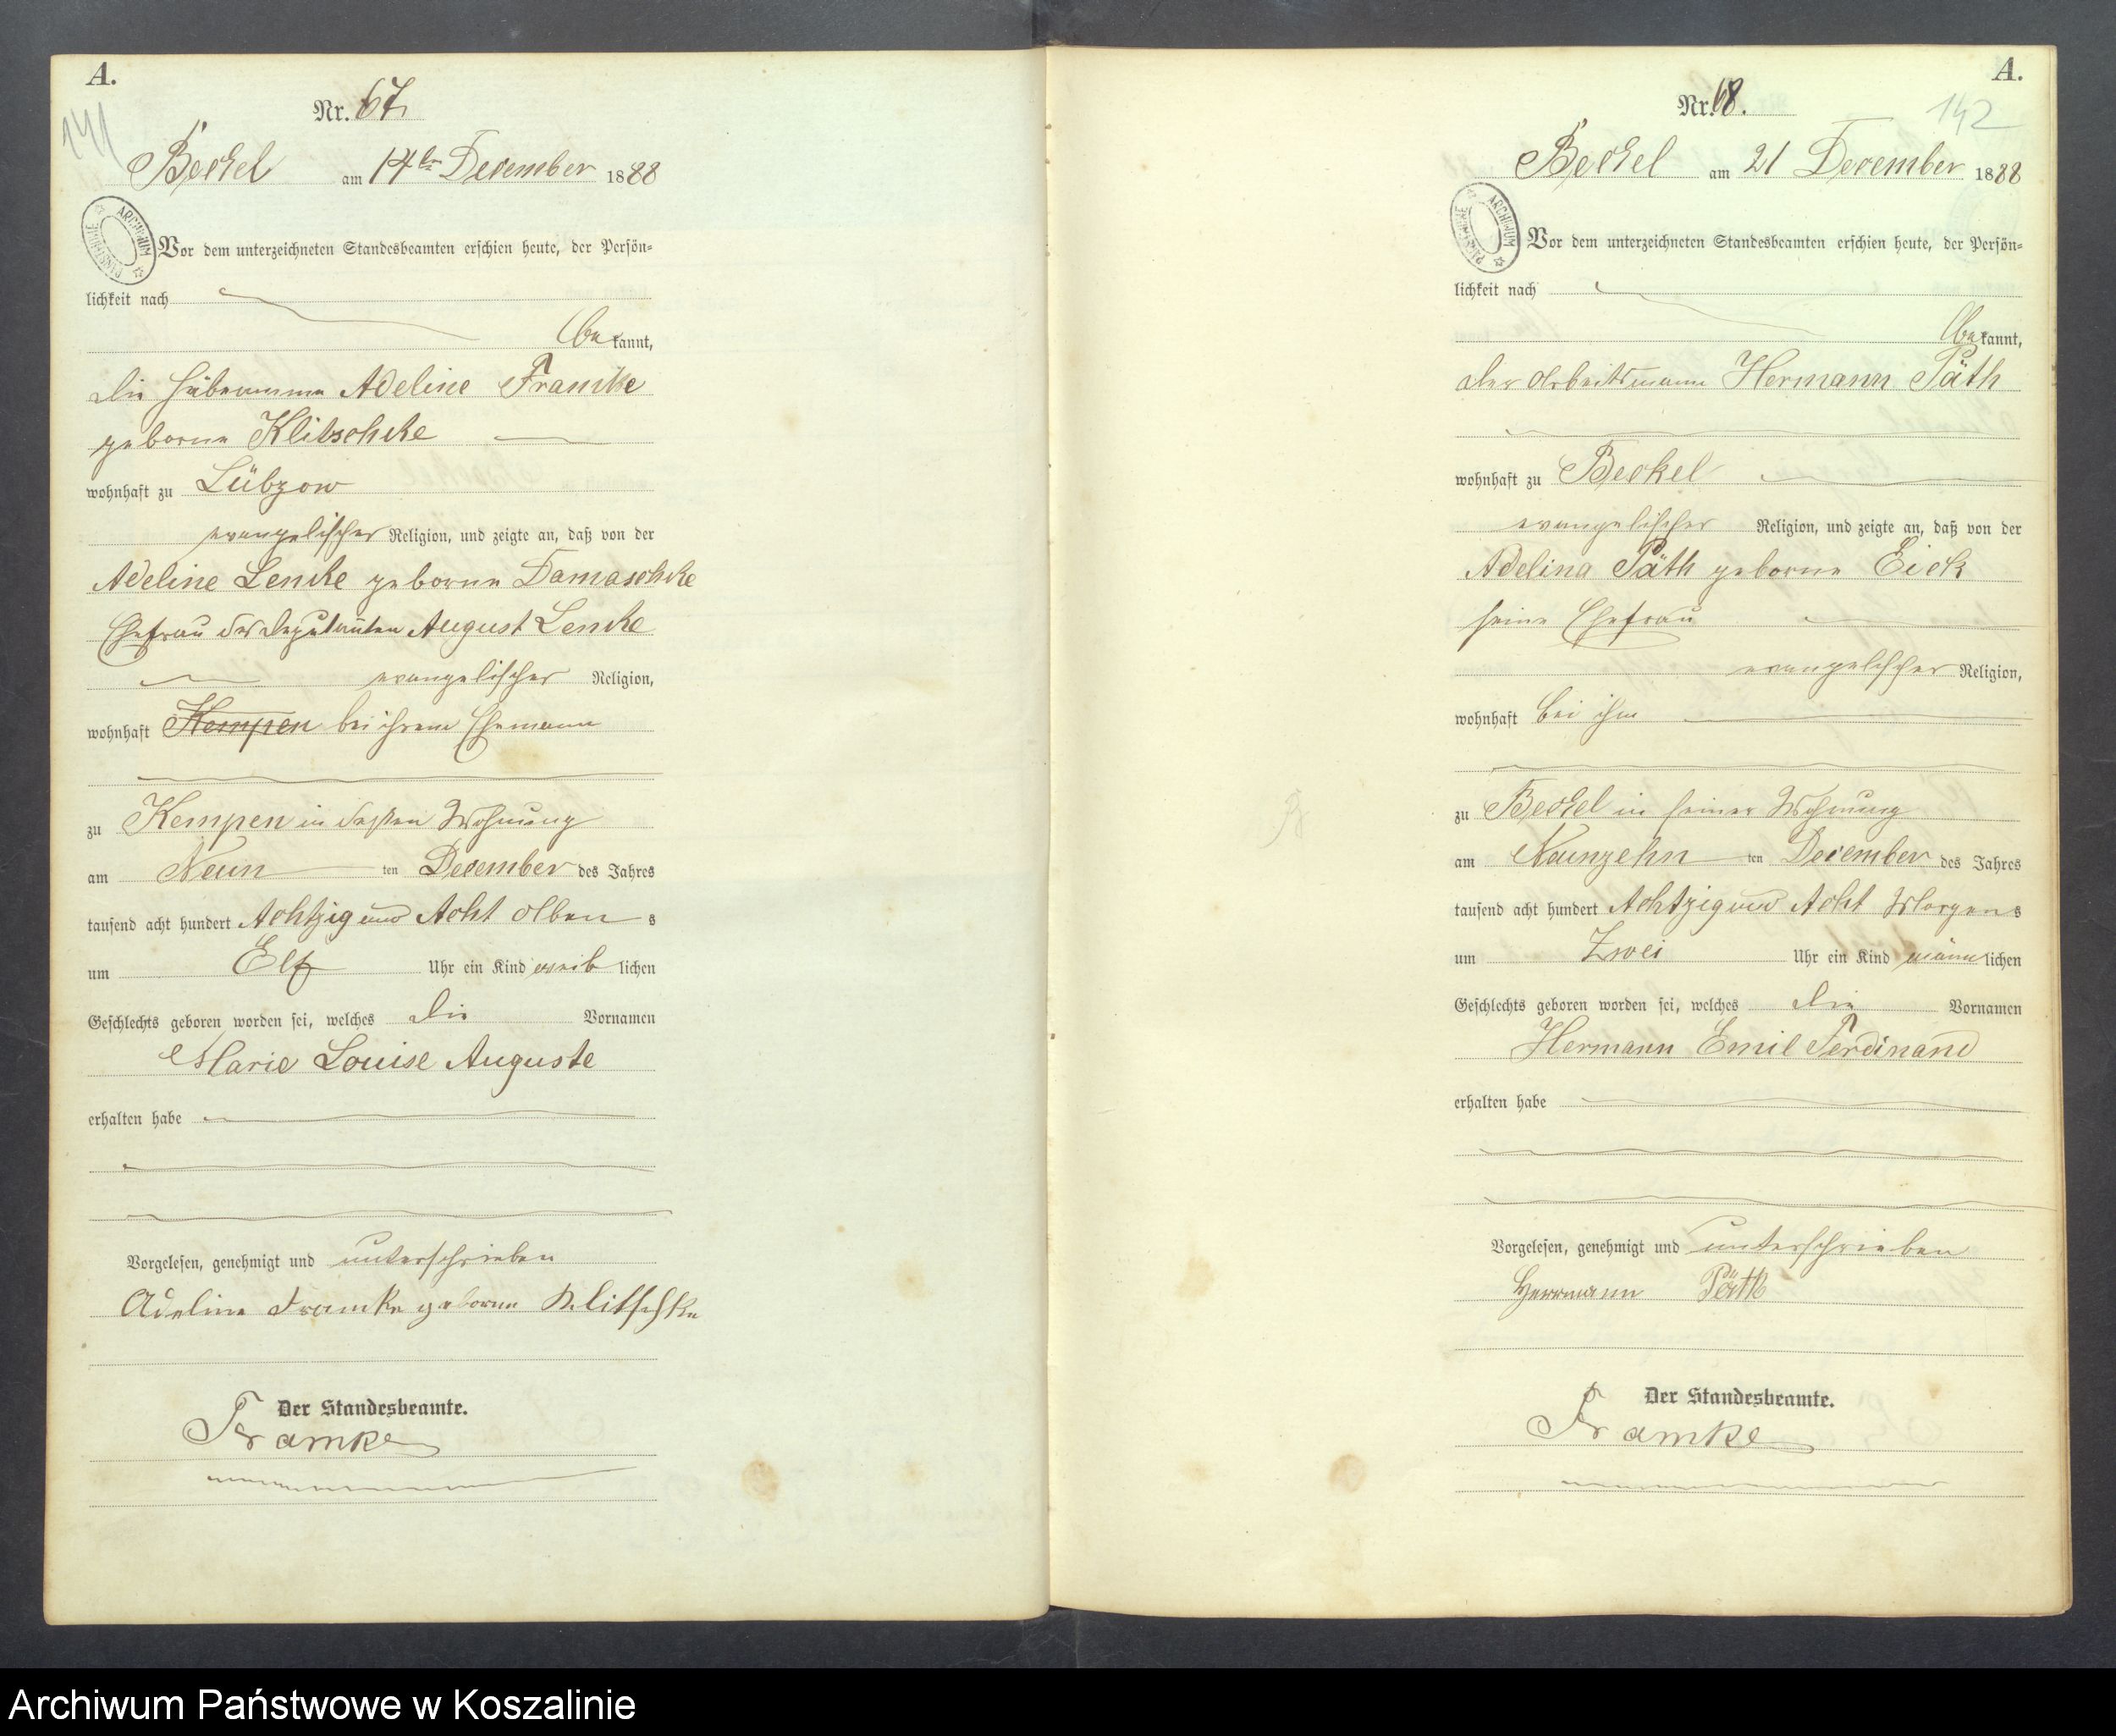 A.
141
Nr. 67
Beckel am 14ten December 1888
ARCHIWUM PAŃSTWOWE
Vor dem unterzeichneten Standesbeamten erschien heute, der Persön=
lichkeit nach
bekannt,
die Hebamme Adeline Framke
geborne Klitschke
wohnhaft zu Lübzow
evangelischer Religion, und zeigte an, daß von der
Adeline Lemke geborne Damaschke
Ehefrau des Deputanten August Lemke
evangelischer Religion,
wohnhaft Kempen bei ihrem Ehemann
zu Kempen in dessen Wohnung
am Neun ten December des Jahres
tausend acht hundert Achtzig und Acht Abens
um Elf Uhr ein Kind weiblichen
Geschlechts geboren worden sei, welches die Vornamen
Marie Louise Auguste
erhalten habe
Vorgelesen, genehmigt und unterschrieben
Adeline Framke geborne Klitschke
Der Standesbeamte.
Framke
A.
Nr. 68.
142
Beckel am 21 December 1888
ARCHIWUM PAŃSTWOWE
Vor dem unterzeichneten Standesbeamten erschien heute, der Persön=
lichkeit nach
bekannt,
der Arbeitsmann Hermann Päth
wohnhaft zu Beckel
evangelischer Religion, und zeigte an, daß von der
Adelina Päth geborne Eick
seine Ehefrau
evangelischer Religion,
wohnhaft bei ihm
zu Beckel in seiner Wohnung
am Neunzehn ten December des Jahres
tausend acht hundert Achtzig und Acht Morgens
um Zwei Uhr ein Kind männlichen
Geschlechts geboren worden sei, welches die Vornamen
Hermann Emil Ferdinand
erhalten habe
Vorgelesen, genehmigt und unterschrieben
Herrmann Päth
Der Standesbeamte.
Framke
Archiwum Państwowe w Koszalinie